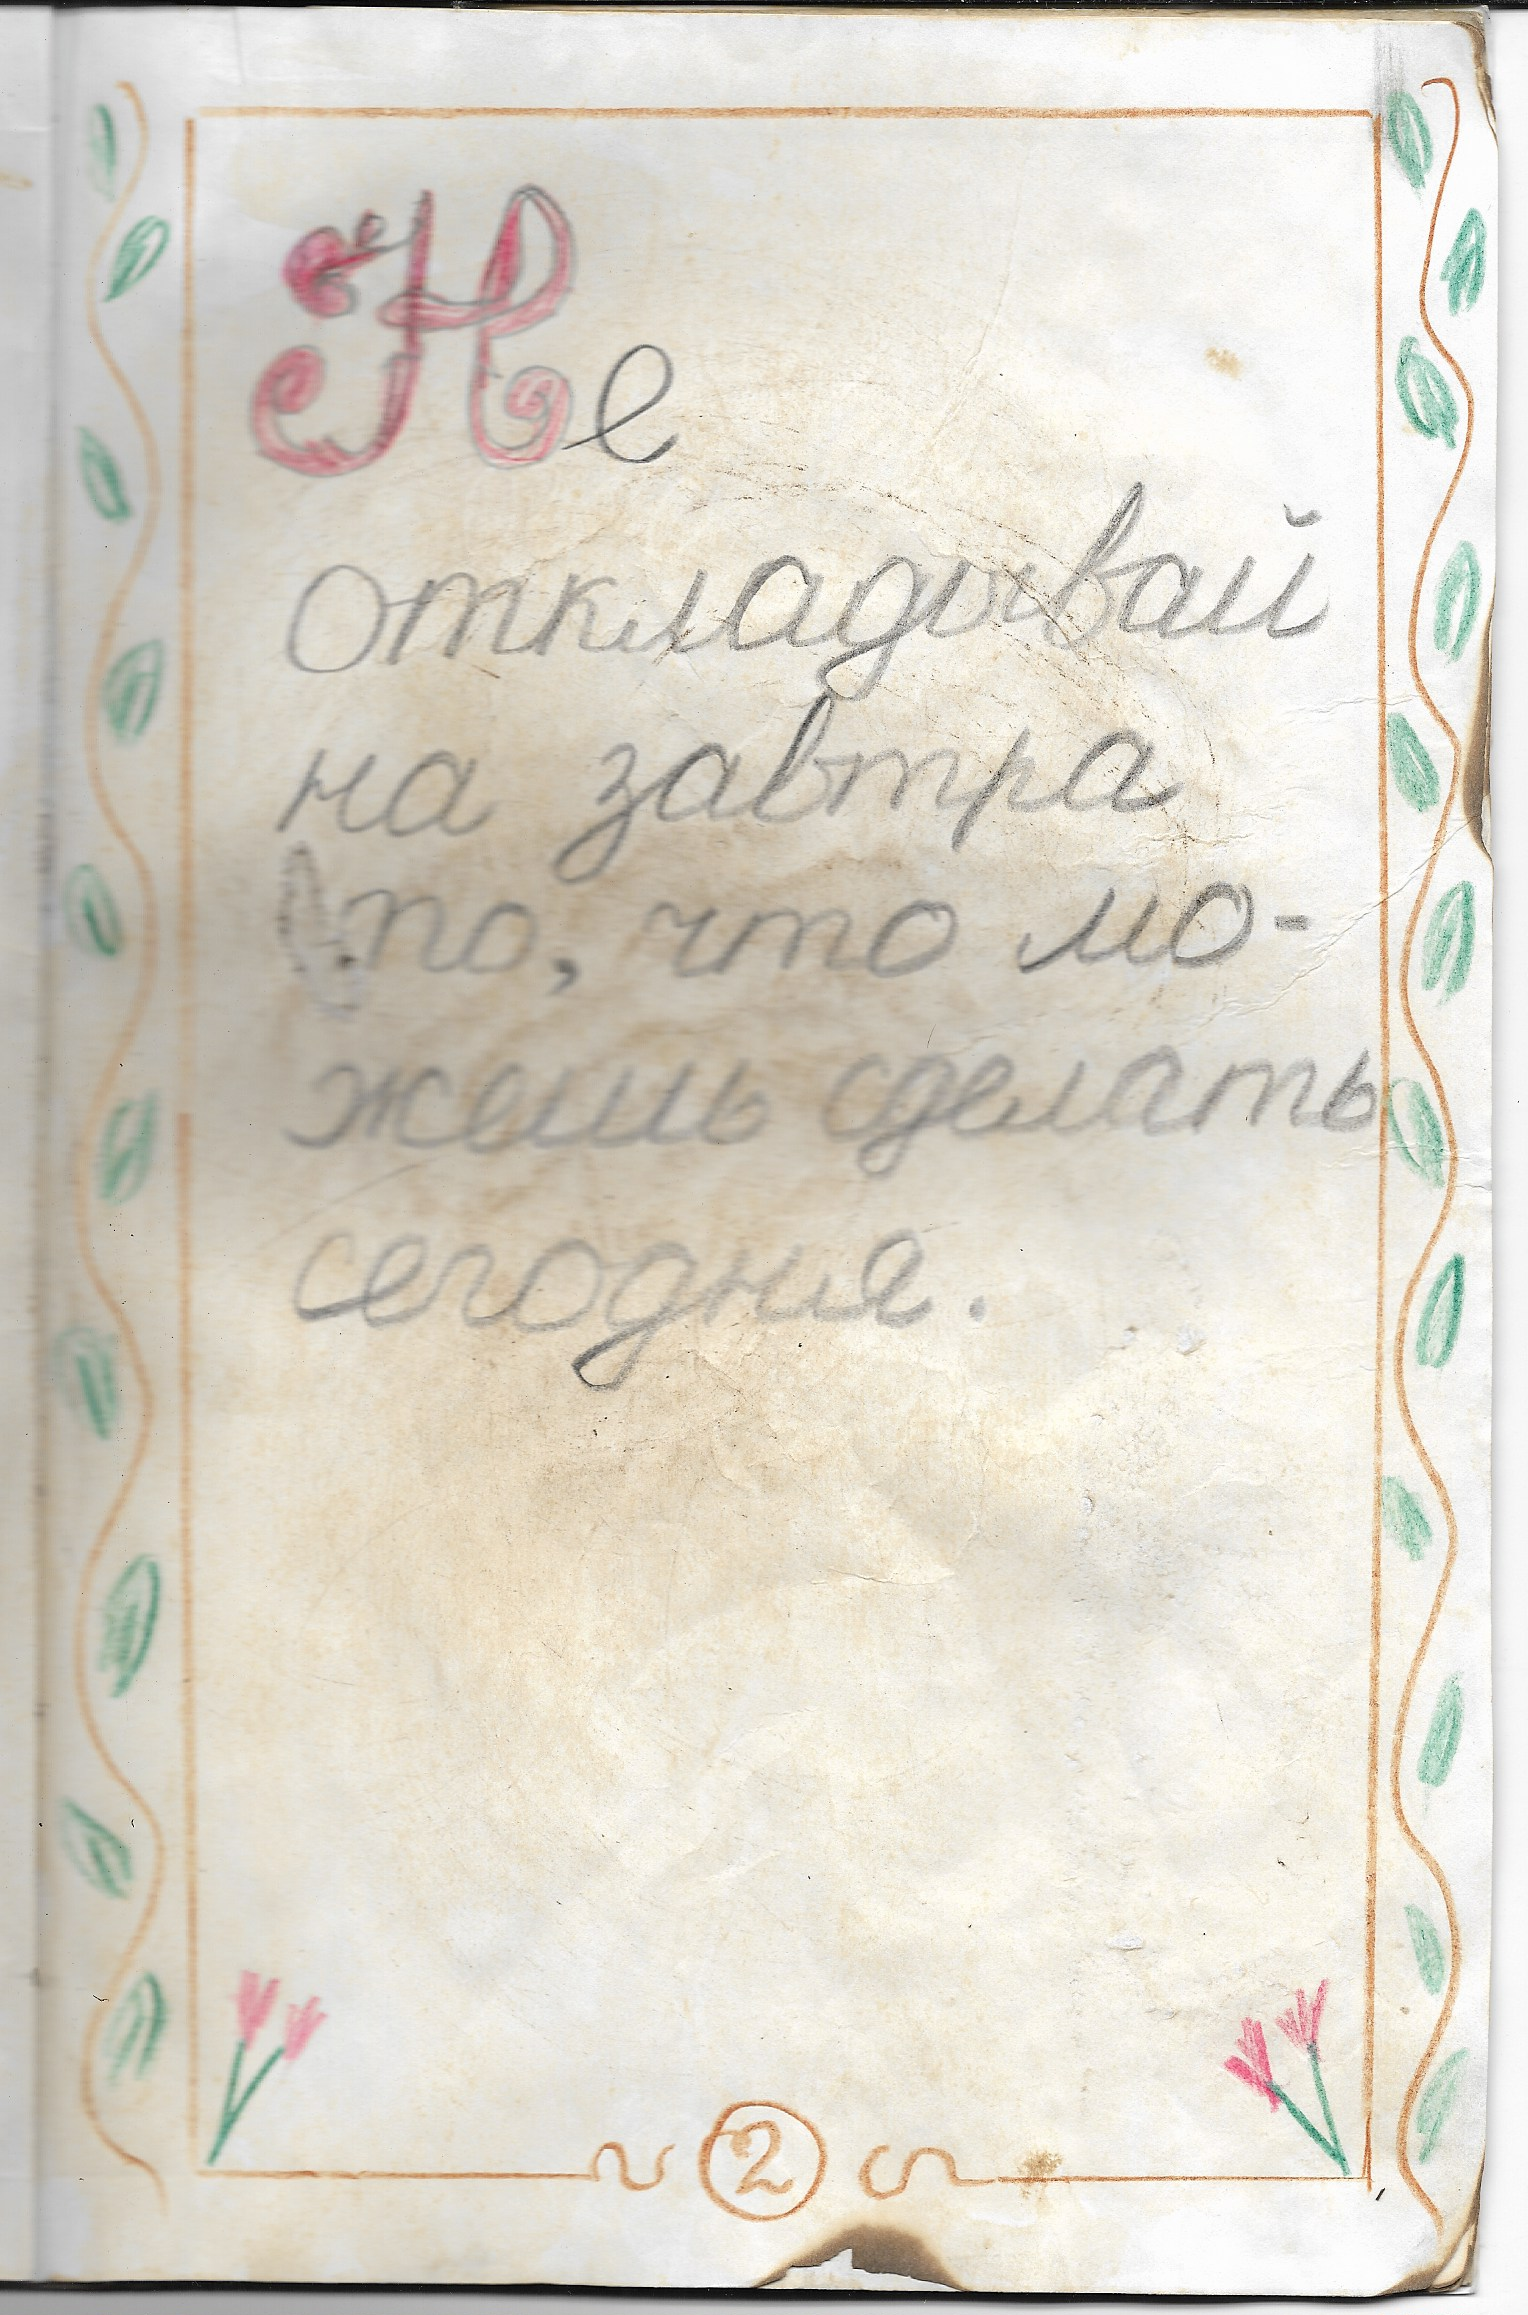 Не
откладывай
на завтра
то, что мо-
жешь сделать
сегодня.
2